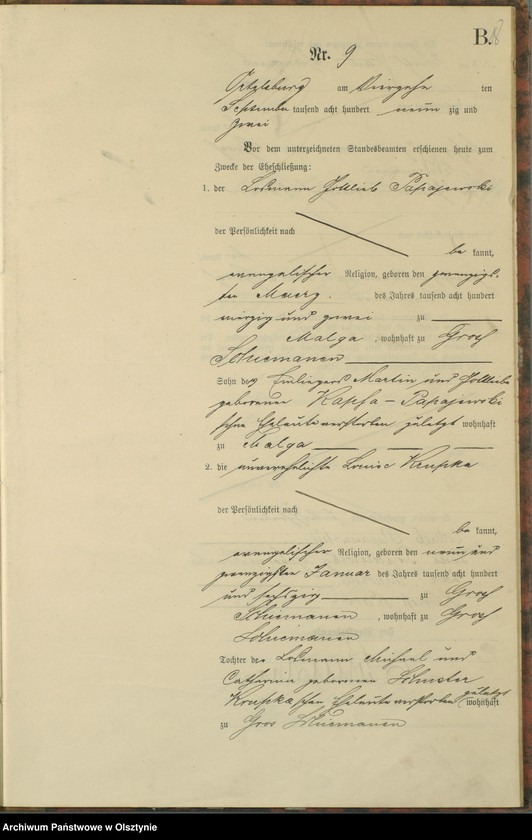 B. 18
Nr. 9
Ortelsburg am Vierzehn ten
September tausend acht hundert neun zig und
zwei
Vor dem unterzeichneten Standesbeamten erschienen heute zum
Zwecke der Eheschließung:
1. der Losmann Gottlieb Papajewski
der Persönlichkeit nach
be kannt,
evangelischer Religion, geboren den zwanzigs-
ten Maerz des Jahres tausend acht hundert
vierzig und zwei zu
Malga, wohnhaft zu Groß
Schiemanen
Sohn der Einlieger Martin und Gottliebe
geborene Kapsa-Papajewski
schen Eheleute verstorben zuletzt wohnhaft
zu Malga
2. die unverehelichte Louise Krupka
der Persönlichkeit nach
be kannt,
evangelischer Religion, geboren den neun und
zwanzigsten Januar des Jahres tausend acht hundert
und sechszig zu Groß
Schiemanen, wohnhaft zu Groß
Schiemanen
Tochter der Losmann Michael und
Catharina geborenen Schuster
Krupkaschen Eheleute verstorben zuletzt wohnhaft
zu Gros Schiemanen
Archiwum Państwowe w Olsztynie